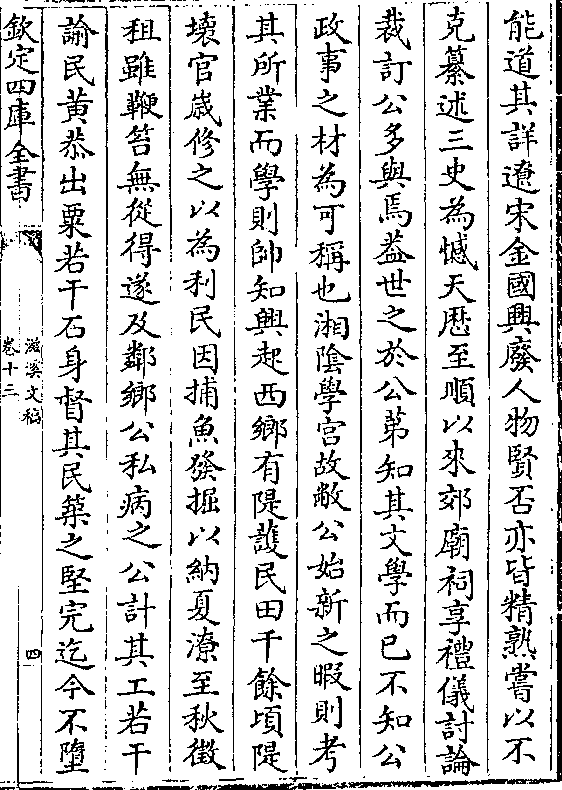 能道其詳遼宋金國興廢人物賢否亦皆精熟嘗以不
克纂述三史為憾天厯至順以來郊廟祠享禮儀討論
裁訂公多與焉葢世之於公苐知其文學而已不知公
政事之材為可稱也湘隂學宫故敝公始新之暇則考
其所業而學則帥知興起西鄉有隄䕶民田千餘頃隄
壊官嵗修之以為利民因捕魚發掘以納夏潦至秋徴
租雖鞭笞無從得遂及鄰鄉公私病之公計其工若干
諭民黄恭出粟若干石身督其民築之堅完迄今不墮
欽定四庫全書
滋溪文稿
卷十三
四